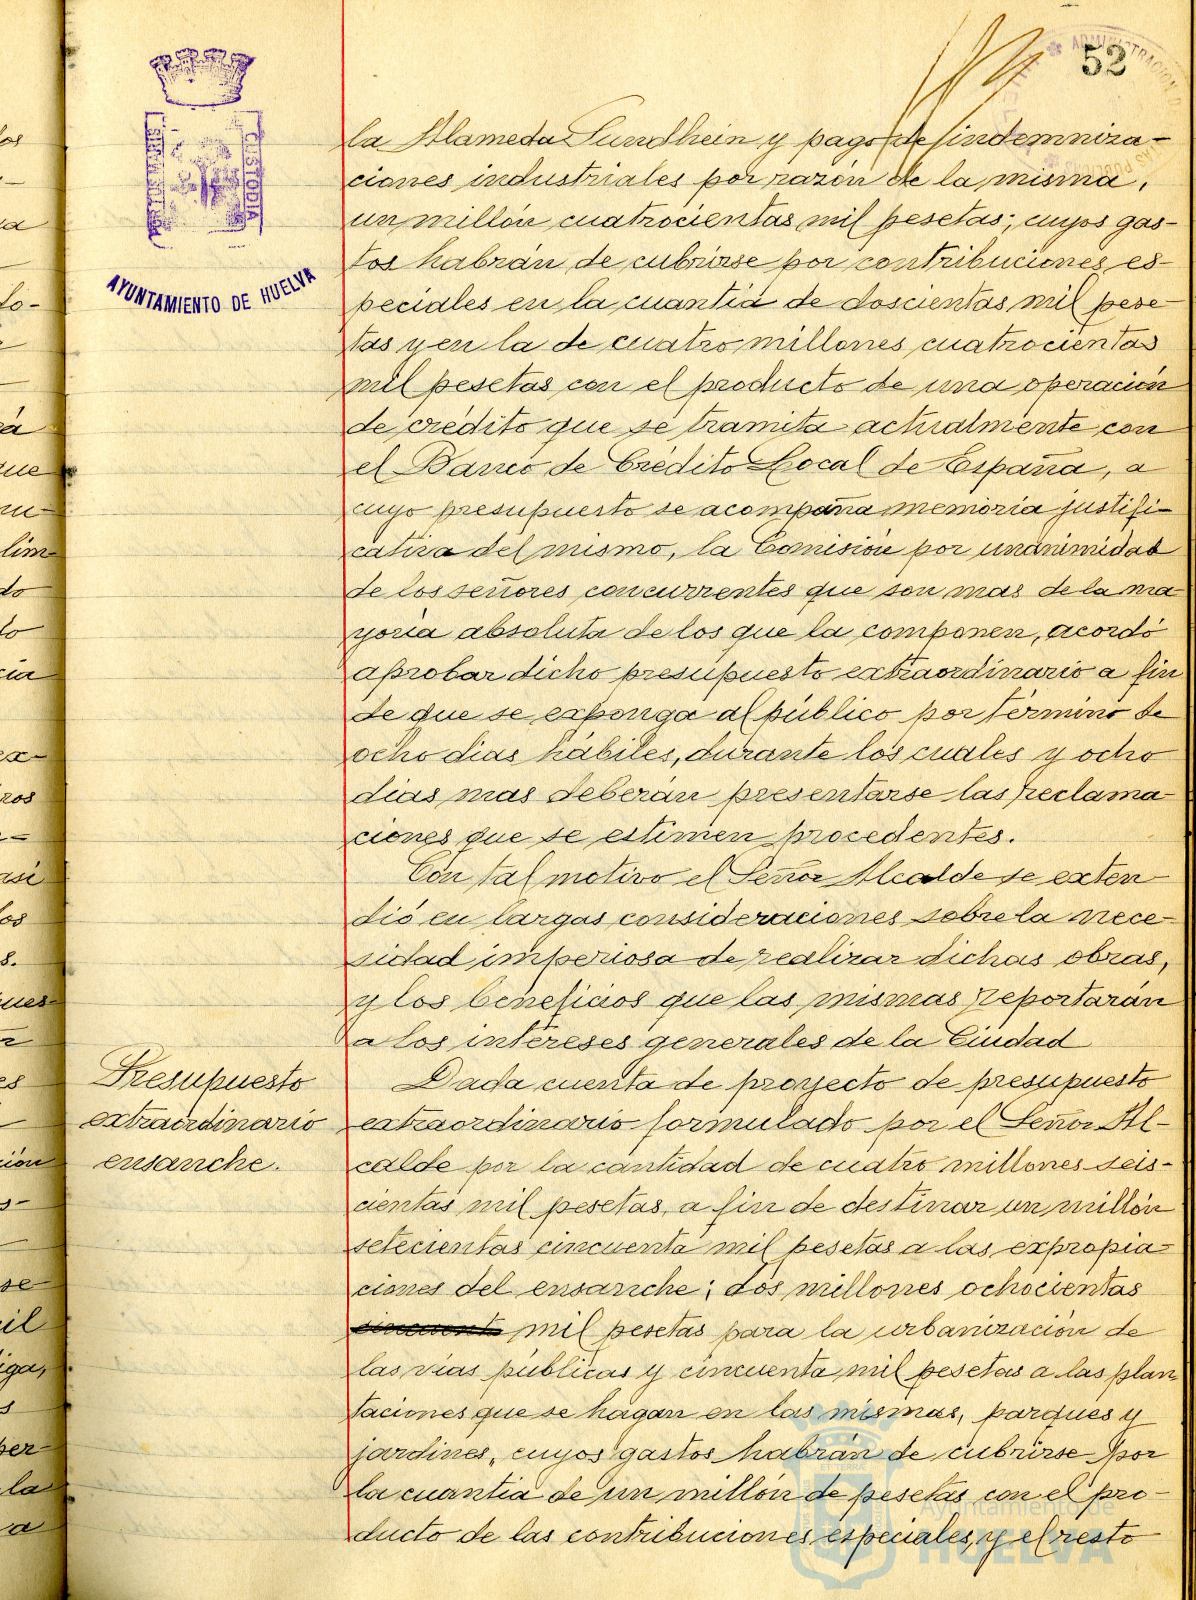 52
CUSTODIA
AYUNTAMIENTO DE HUELVA
la Alameda Sundhein y pago de indemniza-
ciones industriales por razón de la misma,
un millón cuatrocientas mil pesetas; cuyos gas-
tos habrán de cubrirse por contribuciones es-
peciales en la cuantia de doscientas mil pese-
tas y en la de cuatro millones cuatrocientas
mil pesetas con el producto de una operación
de crédito que se tramita actualmente con
el Banco de Crédito Local de España, a
cuyo presupuesto se acompaña memoria justifi-
cativa del mismo, la Comisión por unanimidad
de los señores concurrentes que son mas de la ma-
yoria absoluta de los que la componen, acordó
aprobar dicho presupuesto extraordinario a fin
de que se exponga al público por término de
ocho dias hábiles, durante los cuales y ocho
dias mas deberán presentarse las reclama-
ciones que se estimen procedentes.
Con tal motivo el Señor Alcalde se exten-
dió en largas consideraciones sobre la nece-
sidad imperiosa de realizar dichas obras,
y los beneficios que las mismas reportarán
a los intereses generales de la Ciudad
Presupuesto
extraordinario
ensanche.
Dada cuenta de proyecto de presupuesto
extraordinario formulado por el Señor Al-
calde por la cantidad de cuatro millones seis-
cientas mil pesetas, a fin de destinar un millón
setecientas cincuenta mil pesetas a las expropia-
ciones del ensanche; dos millones ochocientas
cincuenta mil pesetas para la urbanización de
las vías públicas y cincuenta mil pesetas a las plan-
taciones que se hagan en las mismas, parques y
jardines, cuyos gastos habrán de cubrirse por
la cuantia de un millón de pesetas con el pro-
ducto de las contribuciones especiales, y el resto
Ayuntamiento de
HUELVA